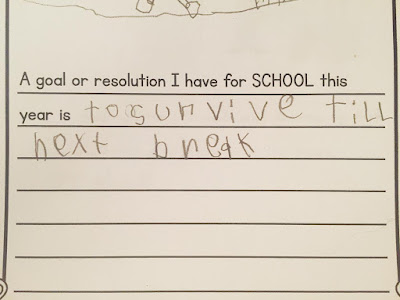 A goal or resolution I have for SCHOOL this
year is to survive till
next break